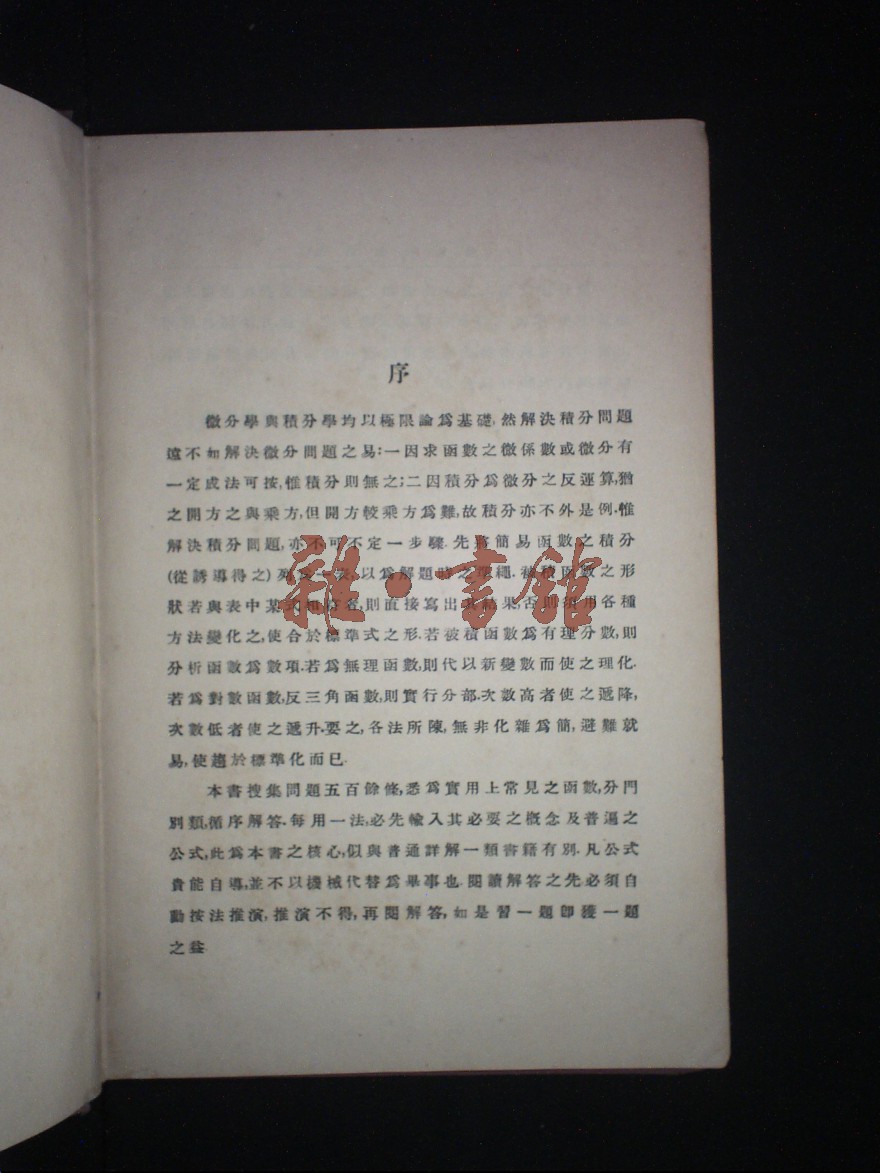 序
微分學與積分學均以極限論爲基礎,然解決積分問題
遠不如解決微分問題之易:一因求函數之微係數或微分有
一定成法可按,惟積分則無之;二因積分爲微分之反運算,猶
之開方之與乘方,但開方較乘方爲難,故積分亦不外是例.惟
解決積分問題,亦不可不定一步驟.先將簡易函數之積分
(從誘導得之)列爲一表,以爲解題時之準繩.被積函數之形
狀若與表中某式相符者,則直接寫出其結果,否則須用各種
方法變化之,使合於標準式之形.若被積函數爲有理分數,則
分析函數爲數項.若爲無理函數,則代以新變數而使之理化.
若爲對數函數,反三角函數,則實行分部.次數高者使之遞降,
次數低者使之遞升.要之,各法所陳,無非化雜爲簡,避難就
易,使趨於標準化而已.
本書搜集問題五百餘條,悉爲實用上常見之函數,分門
別類,循序解答.每用一法,必先輸入其必要之概念及普遍之
公式,此爲本書之核心,似與普通詳解一類書籍有別.凡公式
貴能自導,並不以機械代替爲畢事也.閱讀解答之先必須自
動按法推演,推演不得,再閱解答,如是習一題卽獲一題
之益.
雜·書館